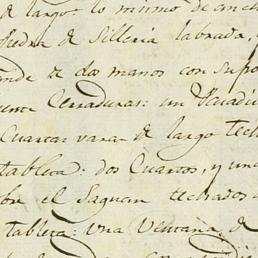 de largo: lo mismo de anch
Piedra de Silleria labrada,
ande de dos manos con su po
uente Cerraduras: un Penadi
Cuarta: varas de largo tech
tableta: dos Cuartos, y una
bre el Saguan techados
tableta: una Ventana, de